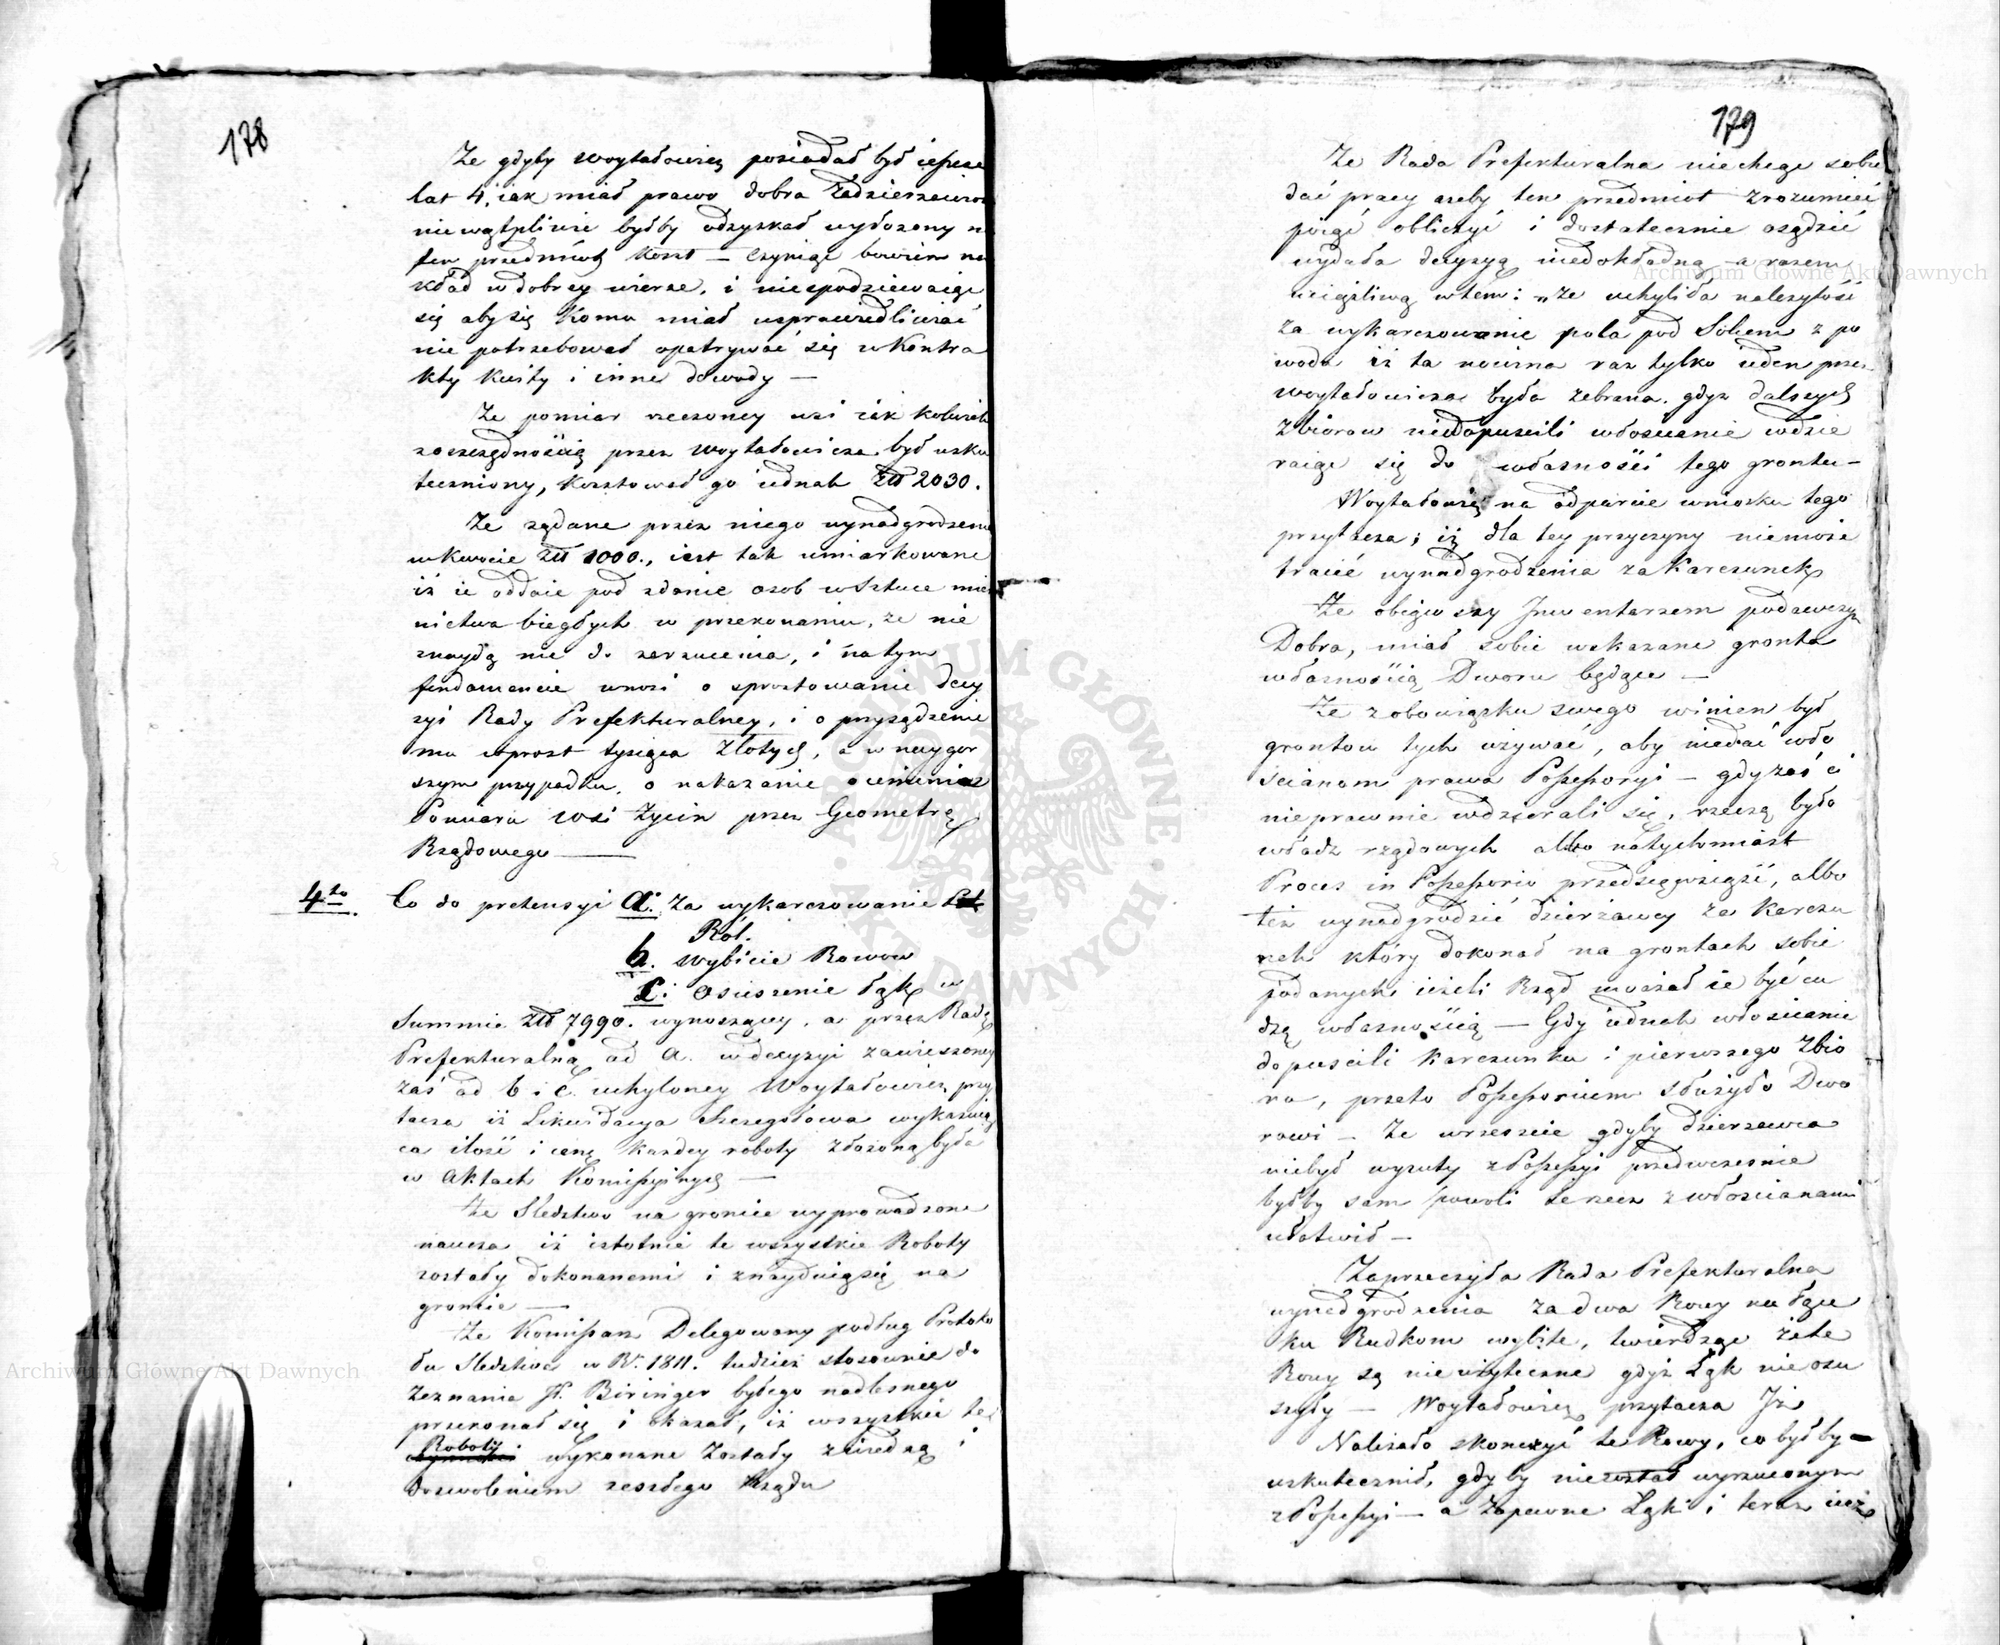 178
Ze gdyby Woytałowicz posiadał był ieszcze
lat 4, iak miał prawo dobra
niewątpliwie byłby odzyskał wyłożony n
ten przedmiot koszt — Czyniąc bowiem na
kład w dobrey wierze, i niespodziewaiąc
się aby się komu miał usprawiedliwiać
nie potrzebował opatrywać się w kontra
kty kwity i inne dowody —
Ze pomiar rzeczoney wsi iak kolwiek
z oszczędnością przez Woytałowicza był usku
teczniony, kosztował go iednak Złł 2030.
Ze rządane przez niego wynadgrodzenie
w kwocie Złł 1000., iest tak umiarkowane
iż ie oddaie pod zdanie osob w sztuce mier
nictwa biegłych w przekonaniu, że nie
znaydą nic do zarzucenia, i na tym
fundamencie wnosi o sprostowanie decy
zyi Rady Prefekturalney, i o przysądzenie
mu wprost tysiąca złotych, a w naygor
szym przypadku, o nakazanie ocenienia
Pomiaru wsi Życin przez Geometrę
Rządowego —
4to Co do pretensyi a. za wykarczowanie
Ról.
b. wybicie Rowow
c. Osuszenie łąk w
Summie Złł 7990. wynoszącey, a przez Radę
Prefekturalną ad a. w decyzyi zawieszoney
zaś ad b i c. uchyloney Woytałowicz przy
tacza iż Likwidacya Szczegółowa wykazuią
ca ilość i cenę każdey roboty złożoną była
w Aktach Kommissyinych —
Ze Sledztwo na groncie wyprowadzone
naucza iż istotnie te wszystkie Roboty
zostały dokonanemi i znayduią się na
groncie —
Ze Kommissarz Delegowany podług Protoko
łu Sledztwa w R. 1811. tudzież stosownie do
zeznania P. Biringer byłego nadlesnego
przekonał się i okazał, iż wszystkie te
Roboty wykonane zostały z wiedzą i
dozwoleniem zeszłego Rządu
179
Ze Rada Prefekturalna niechcąc sobie
dać pracy ażeby ten przedmiot zrozumieć
poiąć obliczyć i dostatecznie osądzić
wydała decyzyą niedokładną a razem
uciążliwą w tem: „że uchyliła należytość
za wykarczowanie pola pod Sobem z po
wodu iż ta nowina raz tylko ieden przez
Woytałowicza była zebrana, gdyż dalszych
zbiorow niedopuscili włoscianie wdzie
raiąc się do własności tego grontu —
Woytałowicz na odparcie wniosku tego
przytacza; iż dla tey przyczyny niemoże
tracić wynadgrodzenia za Karczunek
Ze obiąwszy Inwentarzem podawczym
Dobra, miał sobie wskazane gronta
własnością Dworu będące —
Ze z obowiązku swego winien był
grontow tych używać, aby niedać wło
ścianom prawa Possessoryi — gdy zaś ci
nieprawnie wdzierali się, rzeczą było
władz rządowych albo natychmiast
Proces in Possessorio przedsięwziąść, albo
też wynadgrodzić dzierżawcy za Karczu
nek który dokonał na grontach sobie
podanych ieżeli Rząd uważał ie być cu
dzą własnością — Gdy iednak włoscianie
dopuscili Karczunku i pierwszego zbio
ru, przeto Possessorium służyło Dwo
rowi — Ze wreszcie gdyby dzierżawca
niebył wyzuty z Possessyi przedwcześnie
byłby sam powoli te rzecz z włoscianami
ułatwił —
Zaprzeczyła Rada Prefekturalna
wynadgrodzenia za dwa Rowy na łące
ku Rudkom wybite, twierdząc że te
Rowy są nieużyteczne gdyż Łąk nie osu
szyły — Woytałowicz przytacza Iż
Należało skończyć te Rowy, co byłby
uskutecznił, gdyby niezostał wyrzuconym
z Possessyi — a zapewne Łąki i teraz iuż
Archiwum Główne Akt Dawnych
Archiwum Główne Akt Dawnych
ARCHIWUM GŁÓWNE AKT DAWNYCH